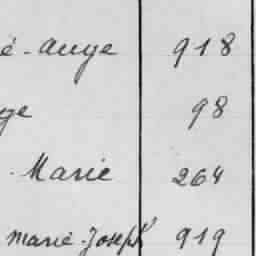 é-Ange 918
ge 98
- Marie 264
Marie-Joseph 919